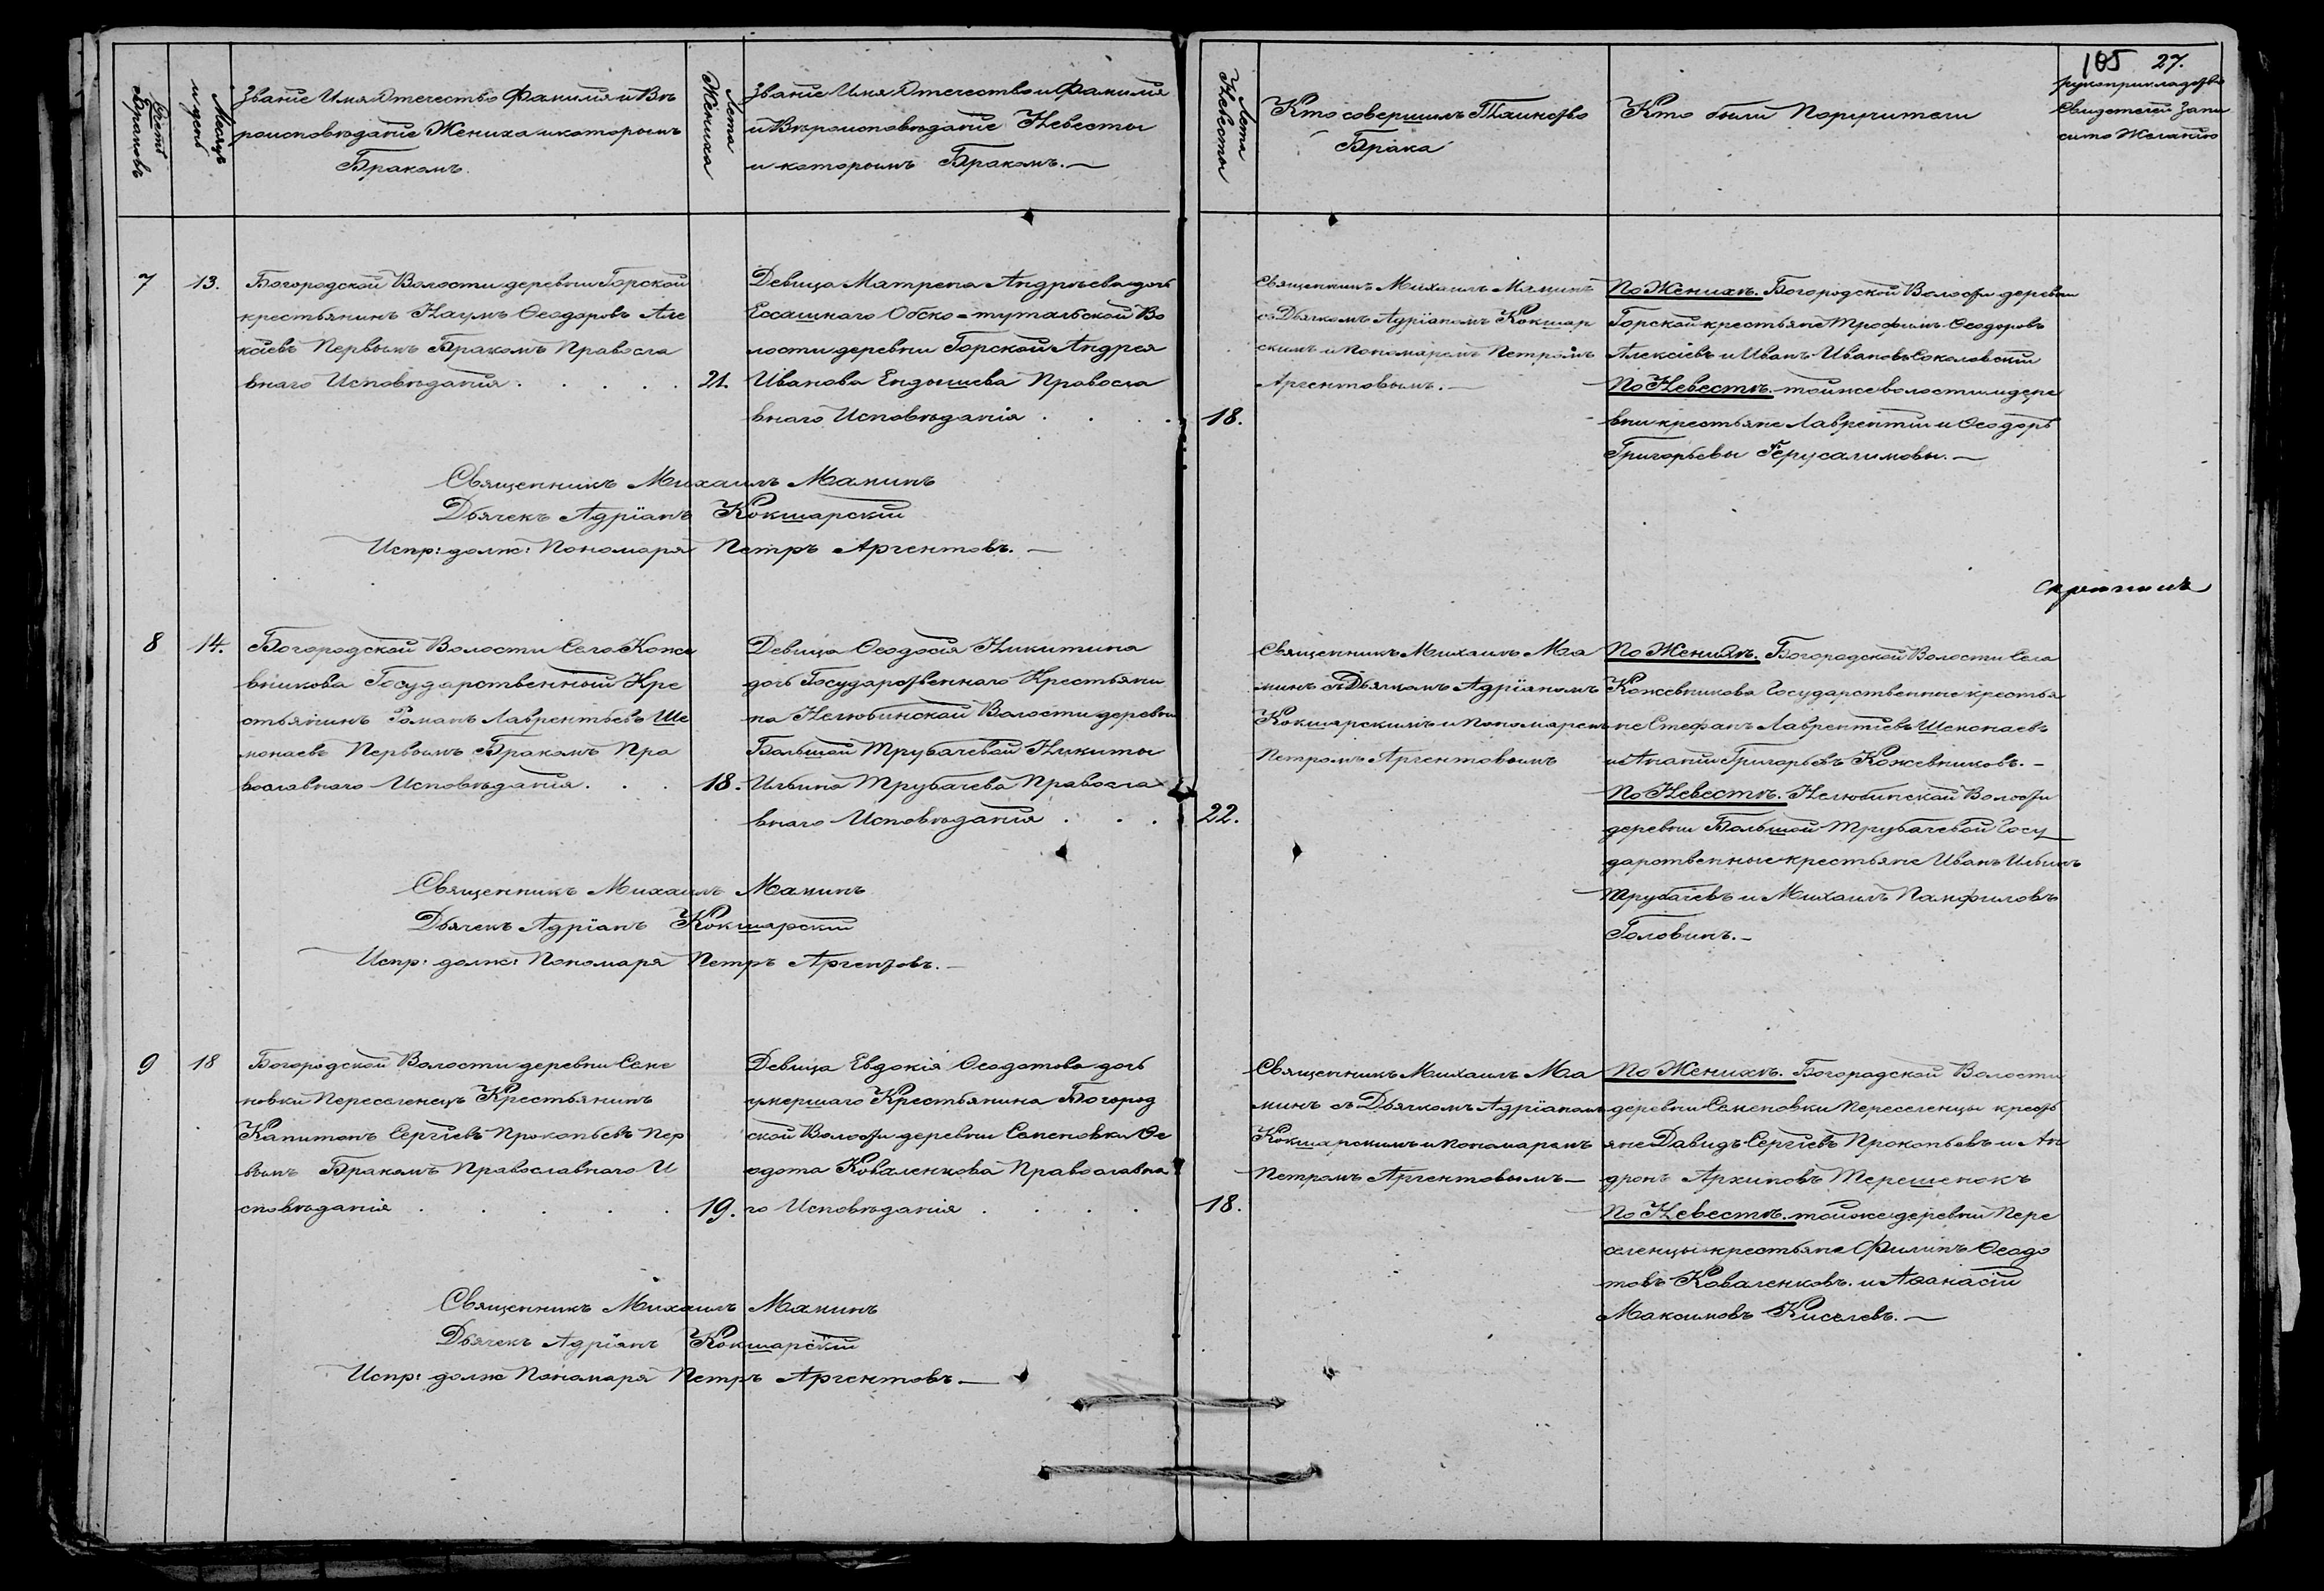 105 27.
Счетъ Браковъ
Месяцъ и день
Званіе Имя Отечество Фамилія и Вѣ
роисповѣданіе Жениха и которымъ
Бракомъ.
Лета Жениха
Званіе Имя Отечество и Фамилія
и Вѣроисповѣданіе Невесты
и которымъ Бракомъ.—
Лета Невесты
Кто совершилъ Таинство
Брака
Кто были Поручители
рукоприкладство
Свидетелей Запи
си по Желанію
7
13.
Богородской Волости деревни Горской
крестьянинъ Наумъ Ѳеодоровъ Але
ксіевъ Первымъ Бракомъ Правосла
внаго Исповѣданія . . . . .
21.
Девица Матрена Андрѣева дочь
Ясашнаго Обско=тутальской Во
лости деревни Горской Андрея
Иванова Ендышева Правосла
внаго Исповѣданія . . .
18.
Священникъ Михаилъ Маминъ
съ Дьячкомъ Адріаномъ Кокшар
скимъ и Пономаремъ Петромъ
Аргентовымъ.—
По Женихѣ. Богородской Волости деревни
Горской крестьяне Трофимъ Ѳеодоровъ
Алексіевъ и Иванъ Ивановъ Соколовскій
По Невестѣ. тойже волости и дере
вни крестьяне Лаврентій и Ѳеодоръ
Григорьевы Іерусалимовы.—
Священникъ Михаилъ Маминъ
Дьячекъ Адріанъ Кокшарскій
Испр: долж: Пономаря Петръ Аргентовъ.—
скрѣпилъ
8
14.
Богородской Волости Села Коже
вникова Государственный Кре
стьянинъ Романъ Лаврентьевъ Ше
монаевъ Первымъ Бракомъ Пра
вославнаго Исповѣданія . . .
18.
Девица Ѳеодосія Никитина
дочь Государственнаго Крестьяни
на Нелюбинской Волости деревни
Большой Трубачевой Никиты
Ильина Трубачева Правосла
внаго Исповѣданія . . .
22.
Священникъ Михаилъ Ма
минъ съ Дьячкомъ Адріаномъ
Кокшарскимъ и Пономаремъ
Петромъ Аргентовымъ
По Женихѣ. Богородской Волости Села
Кожевникова Государственные крестья
не Стефанъ Лаврентіевъ Шемонаевъ
и Ананій Григорьевъ Кожевниковъ.—
По Невестѣ. Нелюбинской Волости
деревни Большой Трубачевой Госу
дарственные крестьяне Иванъ Ильинъ
Трубачевъ и Михаилъ Панфиловъ
Головинъ.—
Священникъ Михаилъ Маминъ
Дьячекъ Адріанъ Кокшарскій
Испр: долж: Пономаря Петръ Аргентовъ.—
9
18
Богородской Волости деревни Семе
новки Переселенецъ Крестьянинъ
Капитонъ Сергіевъ Прокопьевъ Пер
вымъ Бракомъ Православнаго И
сповѣданія . . . . .
19.
Девица Евдокія Ѳеодотова дочь
умершаго Крестьянина Богород
ской Волости деревни Семеновки Ѳе
одота Коваленкова Православна
го Исповѣданія . . . .
18.
Священникъ Михаилъ Ма
минъ съ Дьячкомъ Адріаномъ
Кокшарскимъ и Пономаремъ
Петромъ Аргентовымъ—
По Женихѣ. Богородской Волости
деревни Семеновки Переселенцы кресть
яне Давидъ Сергіевъ Прокопьевъ и Ан
дронъ Архиповъ Терешенокъ
По Невестѣ. тойже деревни Пере
селенцы крестьяне Филипъ Ѳеодо
товъ Коваленковъ. и Аѳанасій
Максимовъ Киселевъ.—
Священникъ Михаилъ Маминъ
Дьячекъ Адріанъ Кокшарскій
Испр: долж Пономаря Петръ Аргентовъ—